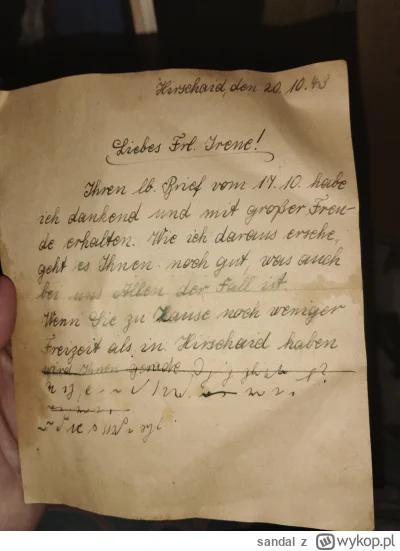 Hirschaid, den 20.10.43
Liebes Frl. Irene!
Ihren lb. Brief vom 17.10. habe
ich dankend und mit großer Freu-
de erhalten. Wie ich daraus ersehe,
geht es Ihnen noch gut, was auch
bei uns Allen der Fall ist.
Wenn Sie zu Hause noch weniger
Freizeit als in Hirschaid haben
wird Ihnen gerade
sandal z wykop.pl